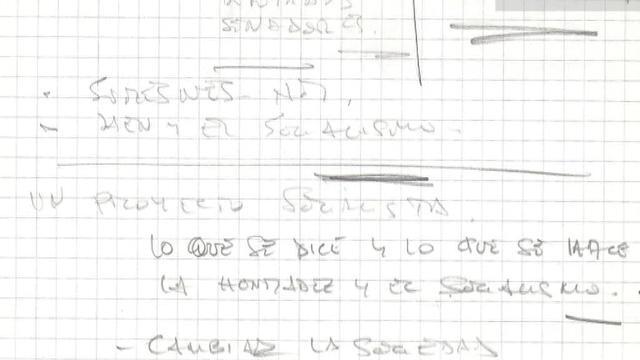 SENADORES.
- SURESNES
- Y EL SOCIALISMO.
UN PROYECTO SOCIALISTA.
LO QUE SE DICE Y LO QUE SE HACE
LA HONRADEZ Y EL SOCIALISMO.
- CAMBIAR LA SOCIEDAD